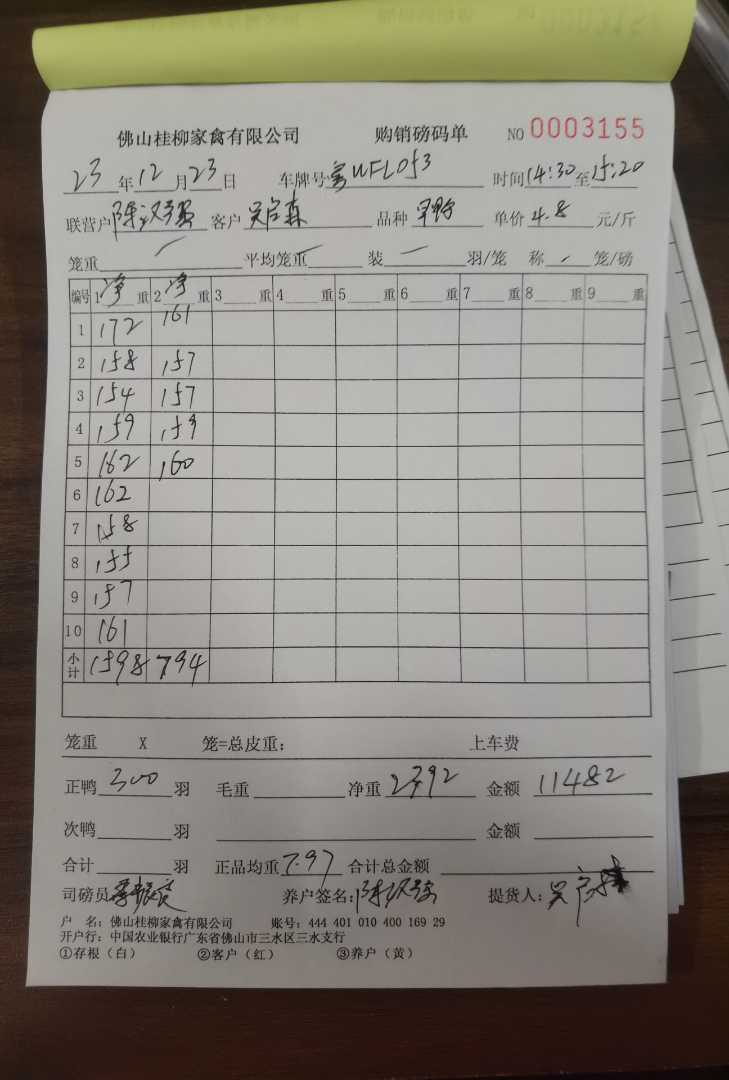 佛山桂柳家禽有限公司 购销磅码单 NO 0003155
23年12月23日 车牌号 WFL053 时间14:30至15:20
联营户 陈汉强 客户 吴启森 品种 早鸭 单价 4.8 元/斤
笼重 / 平均笼重 — 装 — 羽/笼 称 / 笼/磅
编号 1净重 2净重 3 重 4 重 5 重 6 重 7 重 8 重 9 重
1 172 161
2 158 157
3 154 157
4 159 159
5 162 160
6 162
7 158
8 155
9 157
10 161
小计 1598 794
笼重 X 笼=总皮重: 上车费
正鸭 300 羽 毛重 净重 2392 金额 11482
次鸭 羽 金额
合计 羽 正品均重 7.97 合计总金额
司磅员 养户签名: 陈汉强 提货人: 吴
户 名: 佛山桂柳家禽有限公司 账号: 444 401 010 400 169 29
开户行: 中国农业银行广东省佛山市三水区三水支行
①存根（白） ②客户（红） ③养户（黄）